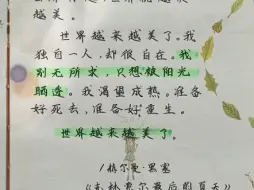 越美了。
世界越来越美了。我
独自一人，却很自在。我
别无所求，只想被阳光
晒透。我渴望成熟。准备
好死去，准备好重生。
世界越来越美了。
/赫尔曼·黑塞
《克林索尔最后的夏天》